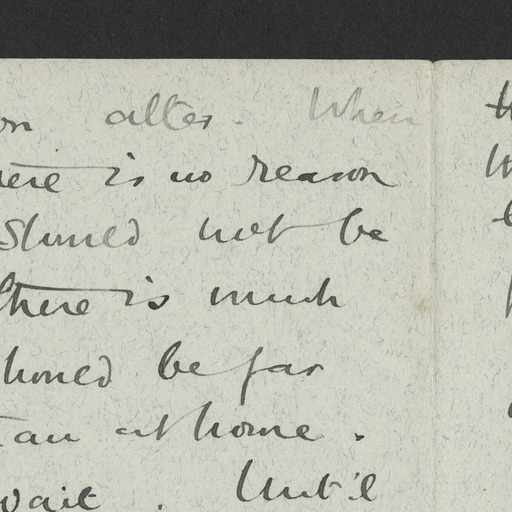 on alter. When
ere is no reason
should not be
there is much
hould be far
an at home.
wait. Until